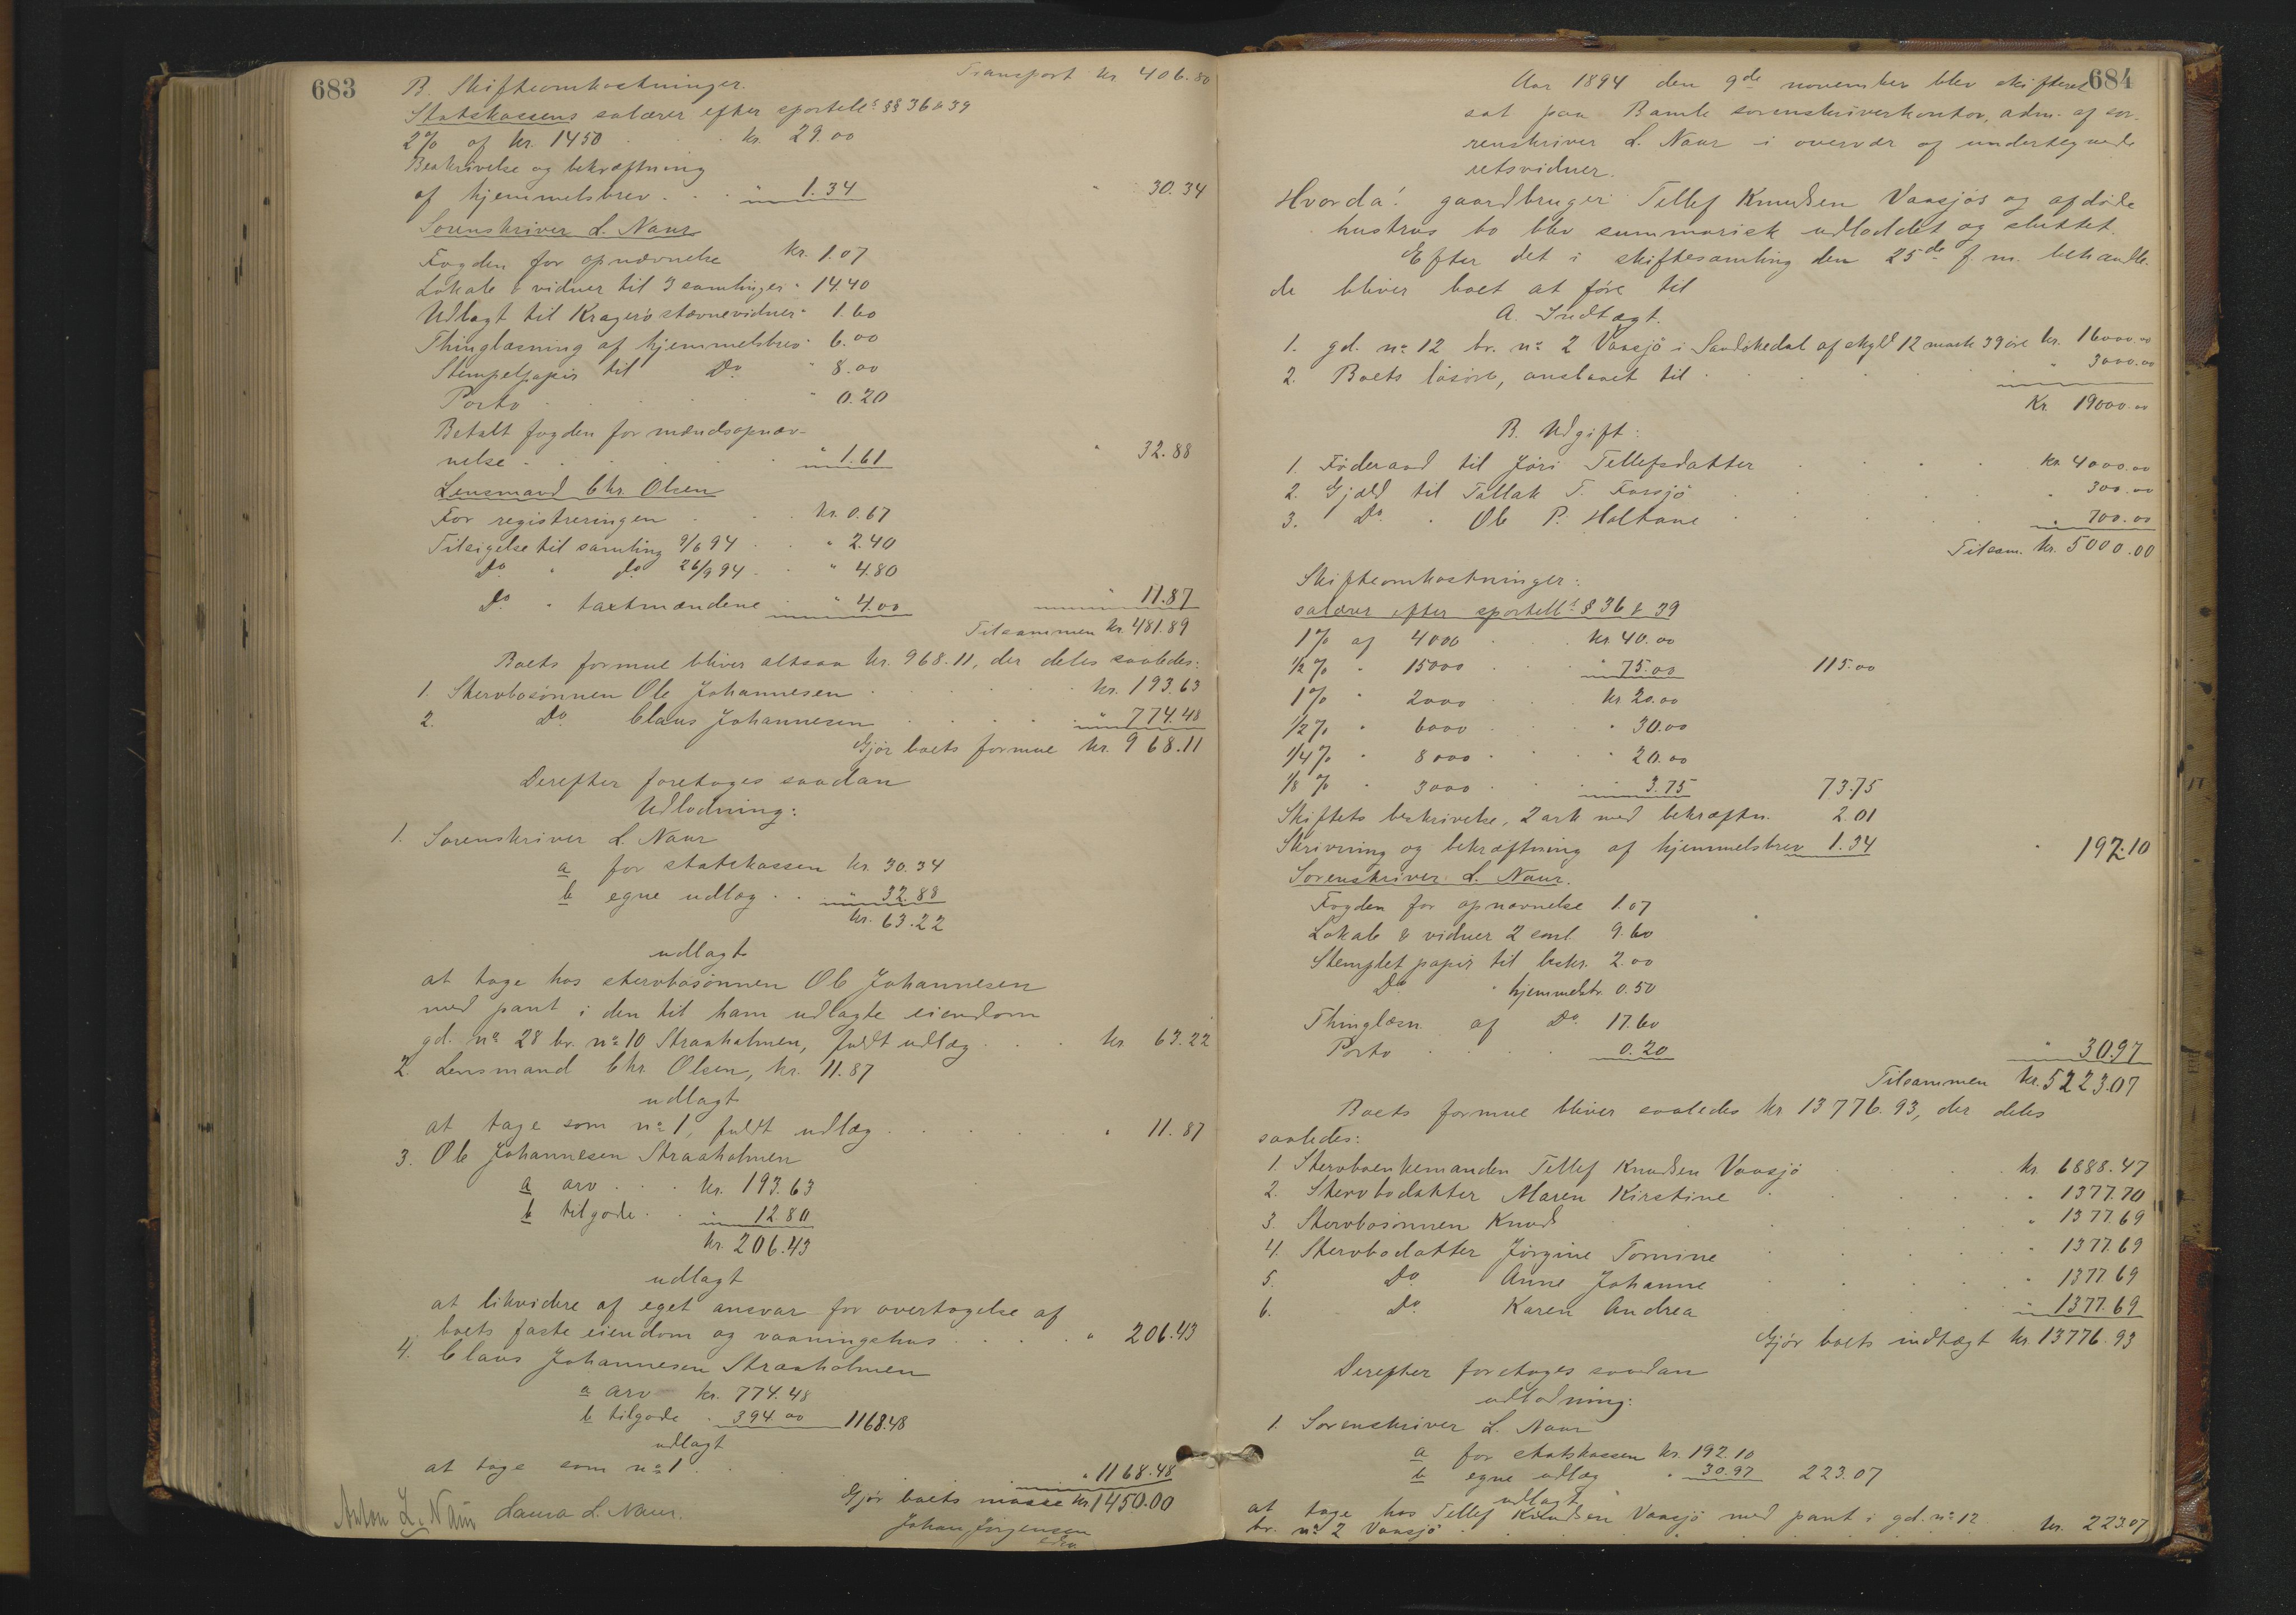 683
B. Skifteomkostninger. Transport kr. 406.80
Statskassens salærer efter sportell. §§ 36 & 39
2% af kr. 1450 . . kr. 29.00
Beskrivelse og bekræftning
af hjemmelsbrev . . " 1.34 " 30.34
Sorenskriver L. Naur
Fogden for opnævnelse kr. 1.07
Lokale & vidner til 3 samlinger " 14.40
Udlagt til Kragerö stævnevidner " 1.60
Thinglæsning af hjemmelsbrev " 6.00
Stempelpapir til Do " 8.00
Porto . . . . " 0.20
Betalt fogden for mændsopnæv-
nelse . . . . " 1.61 " 32.88
Lensmand Chr. Olsen
For registreringen . . kr. 0.67
Tilsigelse til samling 9/6 94 . . " 2.40
Do " do 26/9 94 . . " 4.80
Do " taxtmændene " 4.00 " 11.87
Tilsammen kr. 481.89
Boets formue bliver altsaa kr. 968.11, der deles saaledes:
1. Stervbosönnen Ole Johannesen . . . . kr. 193.63
2. Do Claus Johannesen . . . . " 774.48
Gjör boets formue kr. 968.11
Derefter foretages saadan
Udlodning:
1. Sorenskriver L. Naur
a for statskassen kr. 30.34
b egne udlæg . . " 32.88
kr. 63.22
udlagt
at tage hos stervbosönnen Ole Johannesen
med pant i den til ham udlagte eiendom
gd. no 28 br. no 10 Straaholmen, fuldt udlæg . . . kr. 63.22
2. Lensmand Chr. Olsen, kr. 11.87
udlagt
at tage som no 1, fuldt udlæg . . . . " 11.87
3. Ole Johannesen Straaholmen
a arv . . . kr. 193.63
b tilgode . . " 12.80
kr. 206.43
udlagt
at likvidere af eget ansvar for overtagelse af
boets faste eiendom og vaaningshus . . . . " 206.43
4. Claus Johannesen Straaholmen
a arv kr. 774.48
b tilgode . 394.00 1168.48
udlagt
at tage som no 1 . . . " 1168.48
Gjör boets masse kr. 1450.00
Anton L. Naur Laura L. Naur. Johan Jörgensen
684
Aar 1894 den 9de november blev skifteret
sat paa Bamle sorenskriverkontor, adm. af so-
renskriver L. Naur i overvær af undertegnede
retsvidner.
Hvorda: gaardbruger Tellef Knudsen Vaasjös og afdöde
hustrus bo blev summarisk udloddet og sluttet.
Efter det i skiftesamling den 25de f. m. behandle-
de bliver boet at före til
A. Indtægt.
1. gd. no 12 br. no 2 Vaasjö i Sandökedal af skyld 12 mark 39 öre kr. 16000.00
2. Boets lösöre, anslaaet til . . . . " 3000.00
Kr. 19000.00
B. Udgift:
1. Föderaad til Jöri Tellefsdatter . . . . kr. 4000.00
2. Gjæld til Tallak T. Farsjö . . . . " 300.00
3. Do " Ole P. Holtane . . . . " 700.00
Tilsam. kr. 5000.00
Skifteomkostninger:
salærer efter sportell. § 36 & 39
1% af 4000 . . kr. 40.00
1/2% " 15000 . . " 75.00 115.00
1% " 2000 . . kr 20.00
1/2% " 6000 . . " 30.00
1/4% " 8000 . . " 20.00
1/8% " 3000 . . 3.75 73.75
Skiftets beskrivelse, 2 ark med bekræftn. 2.01
Skrivning og bekræftning af hjemmelsbrev 1.34 " 192.10
Sorenskriver L. Naur.
Fogden for opnævnelse 1.07
Lokale & vidner 2 saml. 9.60
Stemplet papir til beskr. 2.00
Do " hjemmelsbr. 0.50
Thinglæsn. af Do 17.60
Porto . . . . 0.20 " 30.97
Tilsammen kr. 5223.07
Boets formue bliver saaledes kr 13776.93, der deles
saaledes:
1. Stervboenkemanden Tellef Knudsen Vaasjö . . . kr. 6888.47
2. Stervbodatter Maren Kirstine . . . " 1377.70
3. Stervbosönnen Knud . . . . " 1377.69
4. Stervbodatter Jörgine Tomine . . . " 1377.69
5. Do Anne Johanne . . . " 1377.69
6. Do Karen Andrea . . . " 1377.69
Gjör boets indtægt kr 13776.93
Derefter foretages saadan
udlodning:
1. Sorenskriver L. Naur
a for statskassen kr. 192.10
b egne udlæg " 30.97 223.07
udlagt
at tage hos Tellef Knudsen Vaasjö med pant i gd. no 12
br. no 2 Vaasjö . . . . kr. 223.07